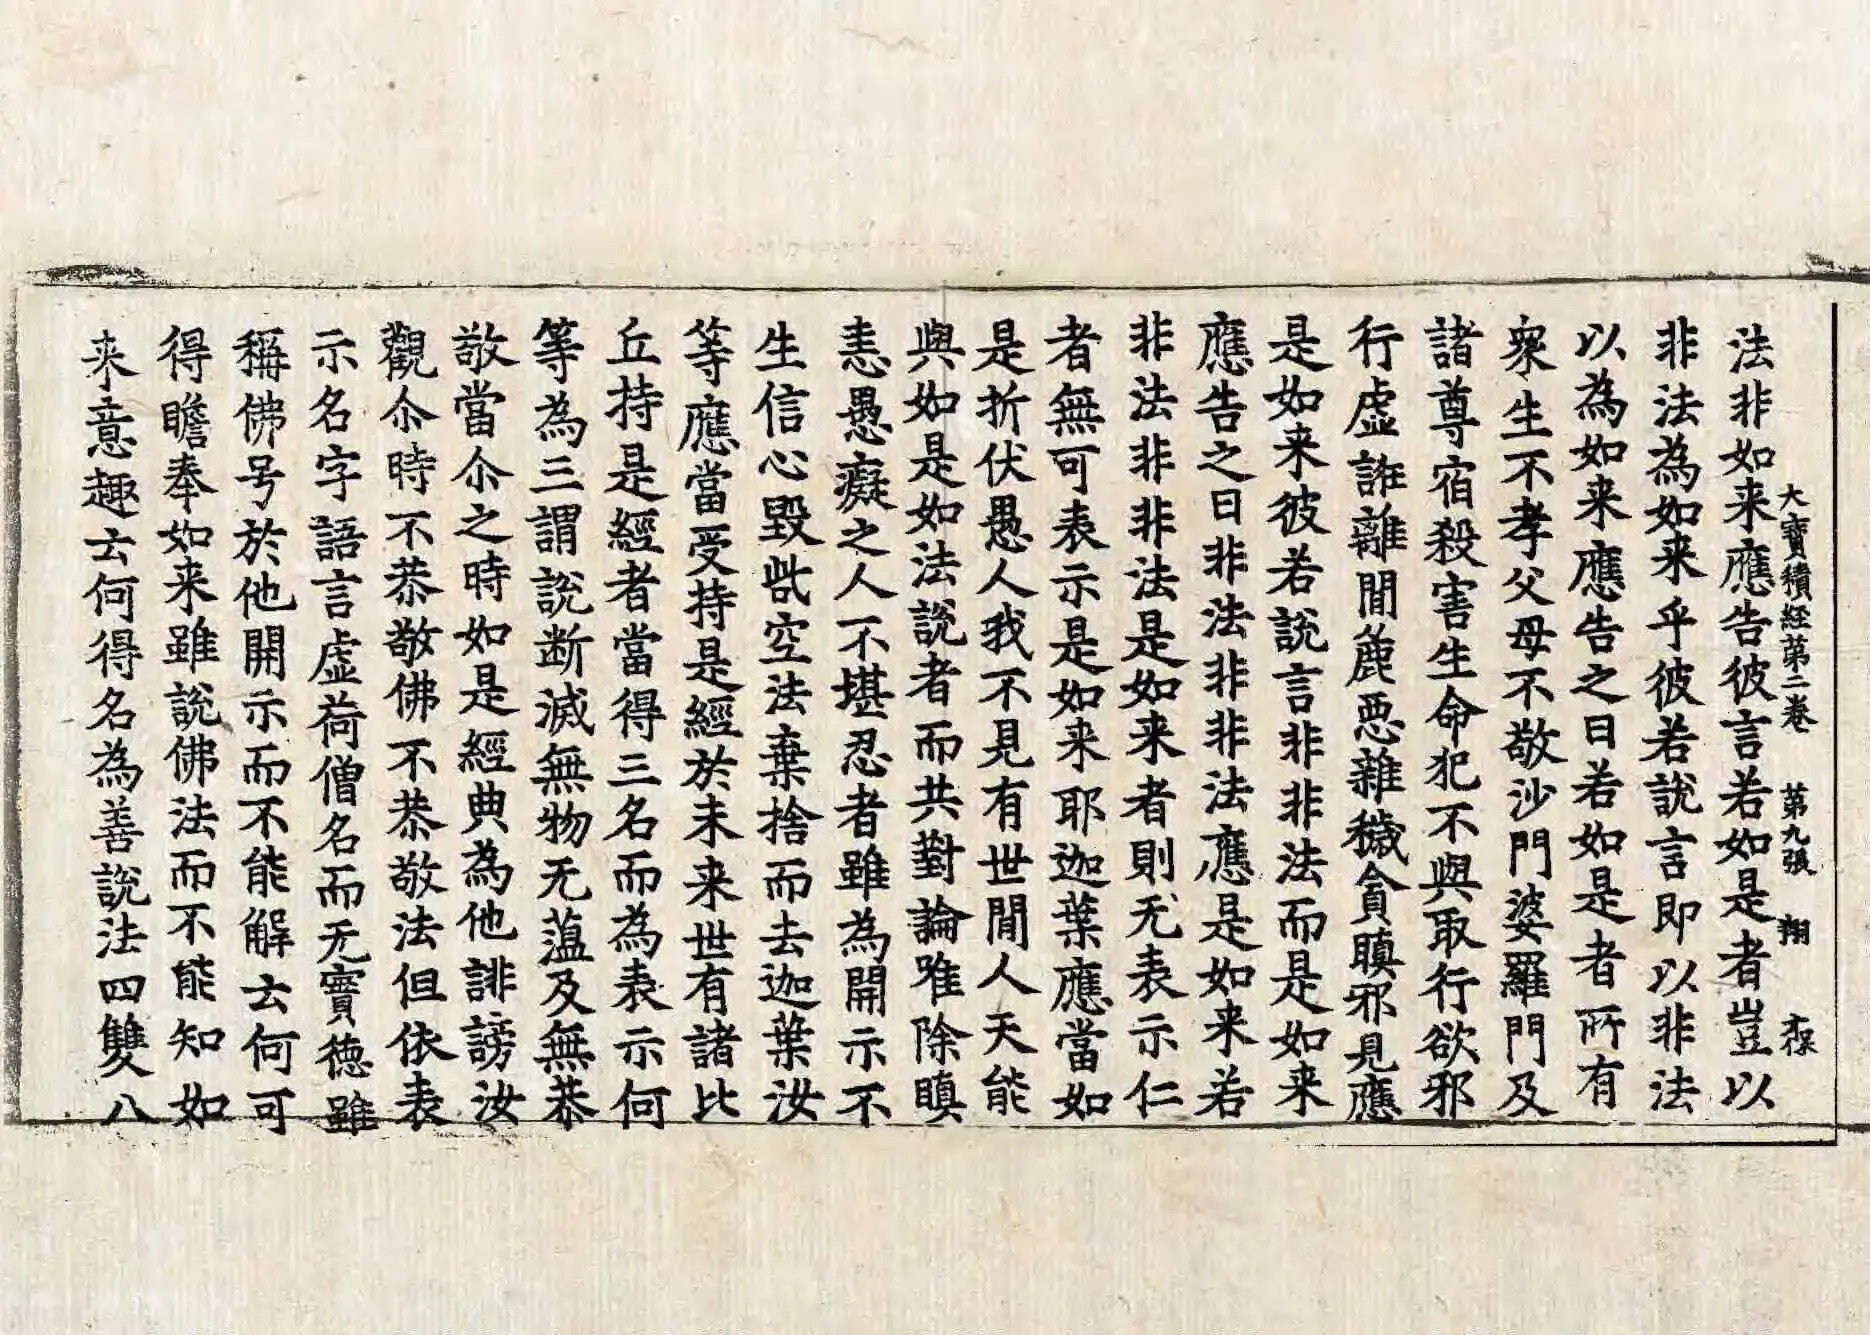 大寶積経苐二卷 苐九張 翔
法非如来應告彼言若如是者豈以
非法為如来乎彼若說言即以非法
以為如来應告之曰若如是者所有
衆生不孝父母不敬沙門婆羅門及
諸尊宿殺害生命犯不與取行欲邪
行虛誑離間麁惡雜穢貪瞋邪見應
是如来彼若說言非非法而是如来
應告之曰非法非非法應是如来若
非法非非法是如来者則无表示仁
者無可表示是如来耶迦葉應當如
是折伏愚人我不見有世間人天能
與如是如法說者而共對論唯除瞋
恚愚癡之人不堪忍者雖為開示不
生信心毀呰空法棄捨而去迦葉汝
等應當受持是經於未来世有諸比
丘持是經者當得三名而為表示何
等為三謂說断滅無物无薀及無恭
敬當尒之時如是經典為他誹謗汝
觀尒時不恭敬佛不恭敬法但依表
示名字語言虛荷僧名而无實德雖
稱佛号於他開示而不能解云何可
得瞻奉如来雖說佛法而不能知如
来意趣云何得名為善說法四雙八